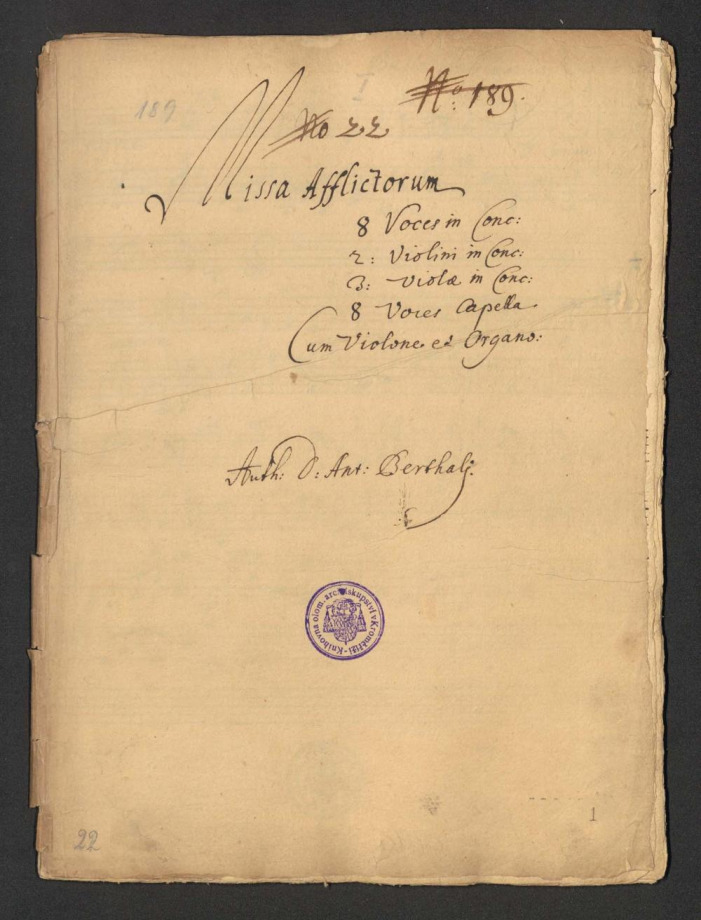 189
I
No: 189.
No 22
Missa Afflictorum
8 Voces in Conc:
2: Violini in Conc:
3: Violæ in Conc:
8 Voces Capella
Cum Violone et Organo:
Auth: D: Ant: Berthali:
Knihovna olom. arcibiskupství v Kroměříži
22
1